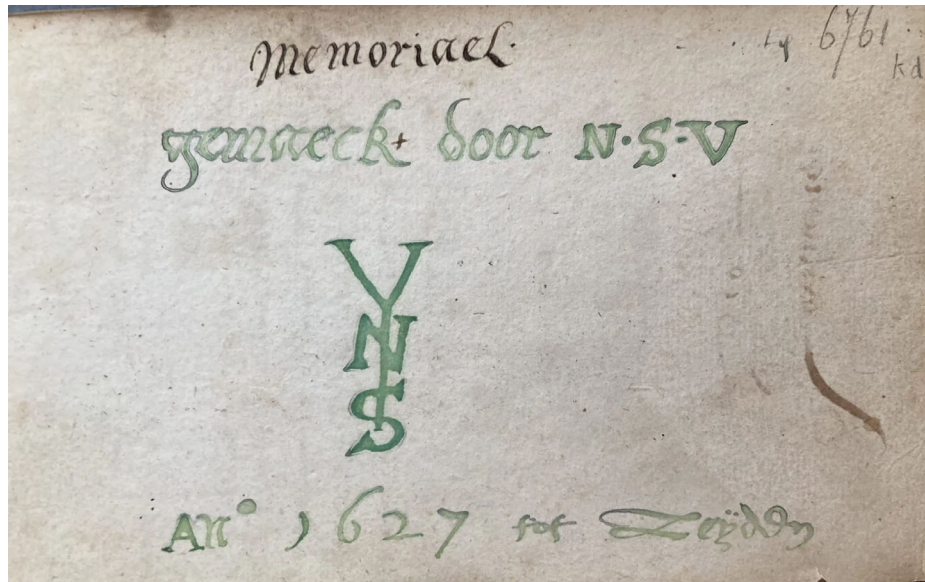 Memoriael.
6761
kd
gemaeckt door N·S·V
V
N
S
An° 1627 tot Leÿden